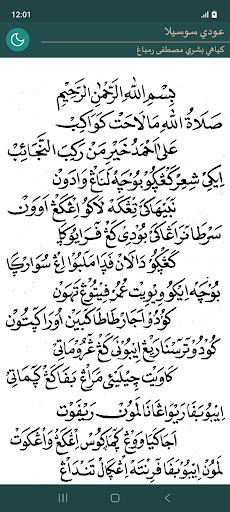 12:01
عودي سوسيلا
كياهي بشري مصطفى رمباغ
بِسْمِ اللهِ الرَّحْمٰنِ الرَّحِيْمِ
صَلَاةُ اللهِ مَا لَاحَتْ كَوَاكِبْ
عَلَى اَحْمَدْ خَيْرِ مَنْ رَكِبَ النَّجَائِبْ
اِيْكِى شِعِرْ كَڠْڮَوْ بَوْچَهْ لَنَاڠْ وَادَوْنْ
نَبِيْهَاكَى تِڠْكَهْ لَاكُوْ اِڠْكَڠْ اَوَوْنْ
سَرْطَا نَرَاڠَاكَى بُوْدِى كَڠْ فَرَايَوْڮَا
كَڠْڮَوْ دَالَانْ فَدَا مْلَبُوْ اِڠْ سُوَارْڮَا
بَوْچَهْ اِيْكُوْ وِيْوِيْتْ عُمُرْ فِيْتُوْڠْ تَهُوْنْ
كُوْدُوْ اَجَارْ طَاطَا كَبَيْنْ اَوْرَا ڮَتُوْنْ
كُوْدُوْ تْرَسْنَا رِيڠْ اِيْبُوْنَى كَڠْ ڠْرُوْمَاتِى
كَاوِيْتْ چِيْلِيْقْ مَرَاڠْ بَفَا كَڠْ ڮَمَاتِى
اِيْبُوْ بَفَا رَيْوَاڠَانَا لَمَوْنْ رَيْفَوْتْ
اَجَا كَيَا وَوْڠْ ڮُمَاڮُوْسْ اِڠْكَڠْ وَاڠْكَوْتْ
لَمَوْنْ اِيْبُوْ بَفَا فْرِيْنْتَهْ اِڠْڮَالْ تَنْدَاڠْ